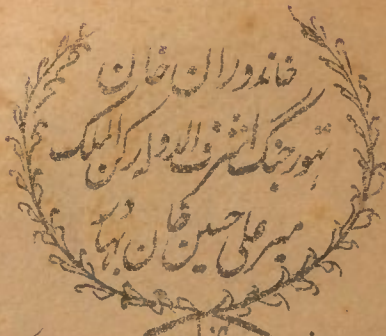 خاندوران خان
تهور جنگ اشرف الدوله رکن الملک
میر علی حسین خان بهادر